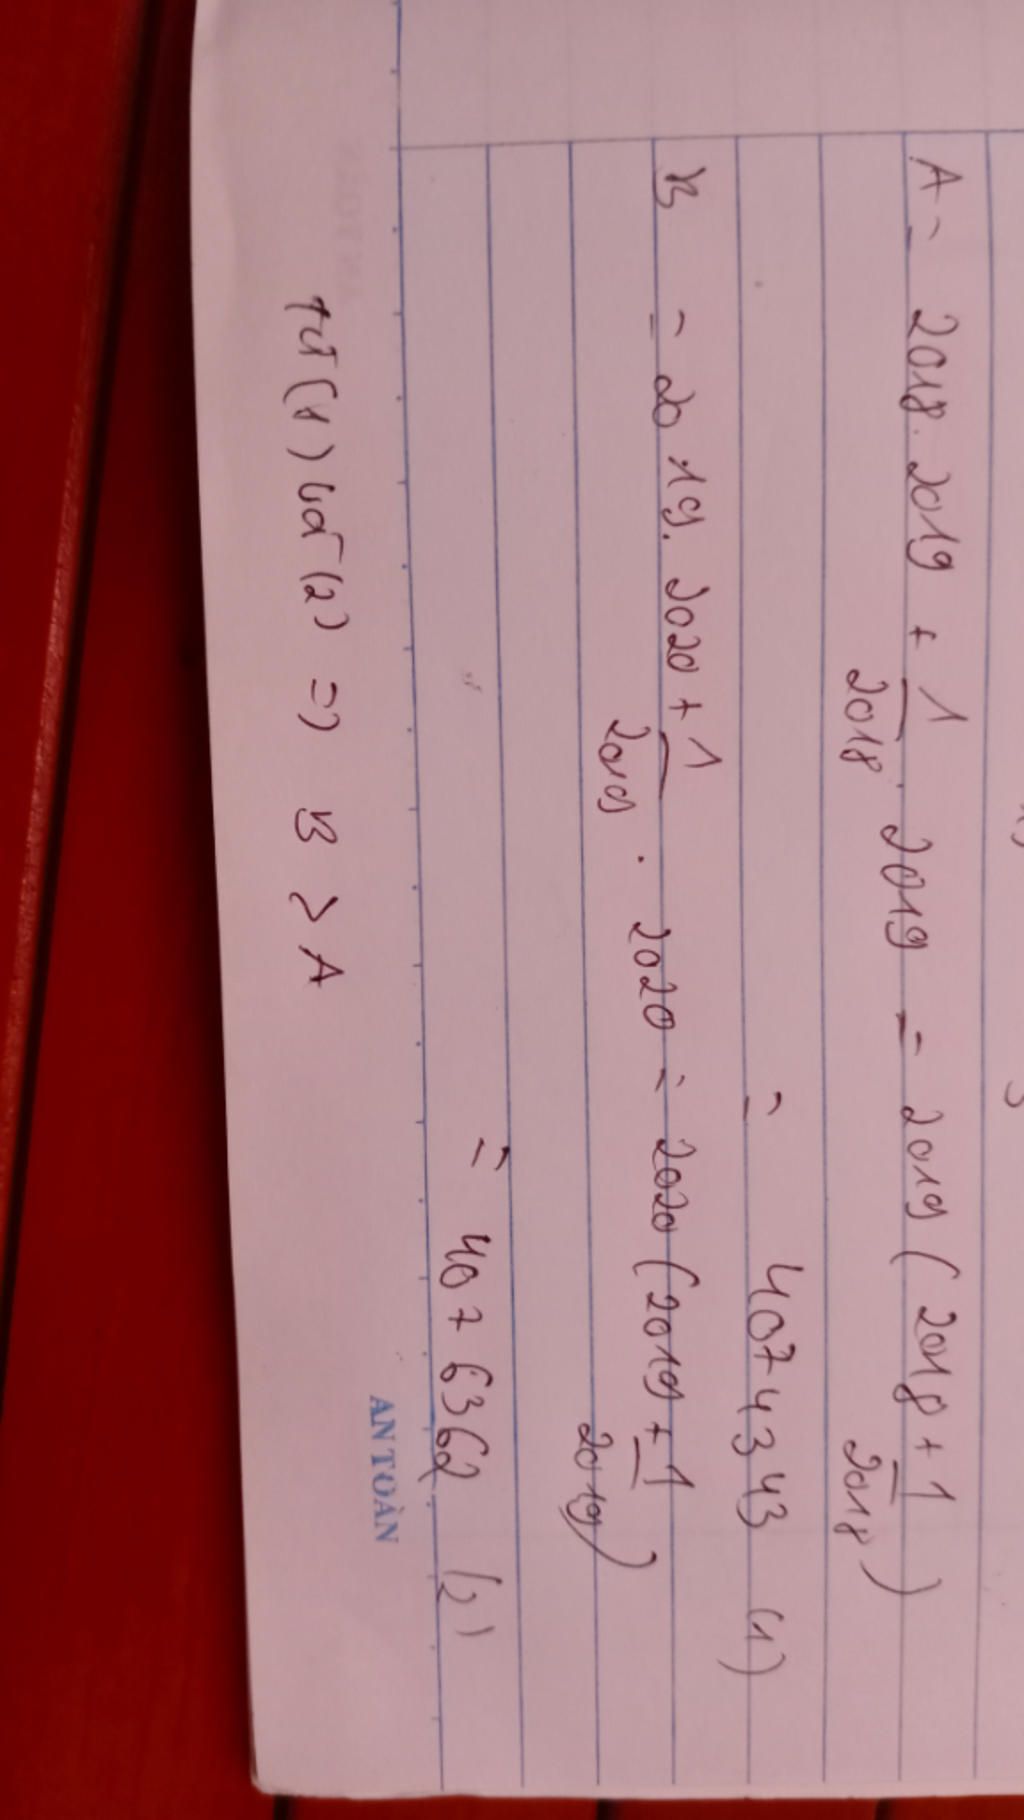 A = 2018.2019 + 1/2018 . 2019 = 2019 (2018 + 1/2018)
= 4074343 (1)
B = 2019.2020 + 1/2019 . 2020 = 2020 (2019 + 1/2019)
= 4076362 (2)
AN TOÀN
từ (1) và (2) => B > A